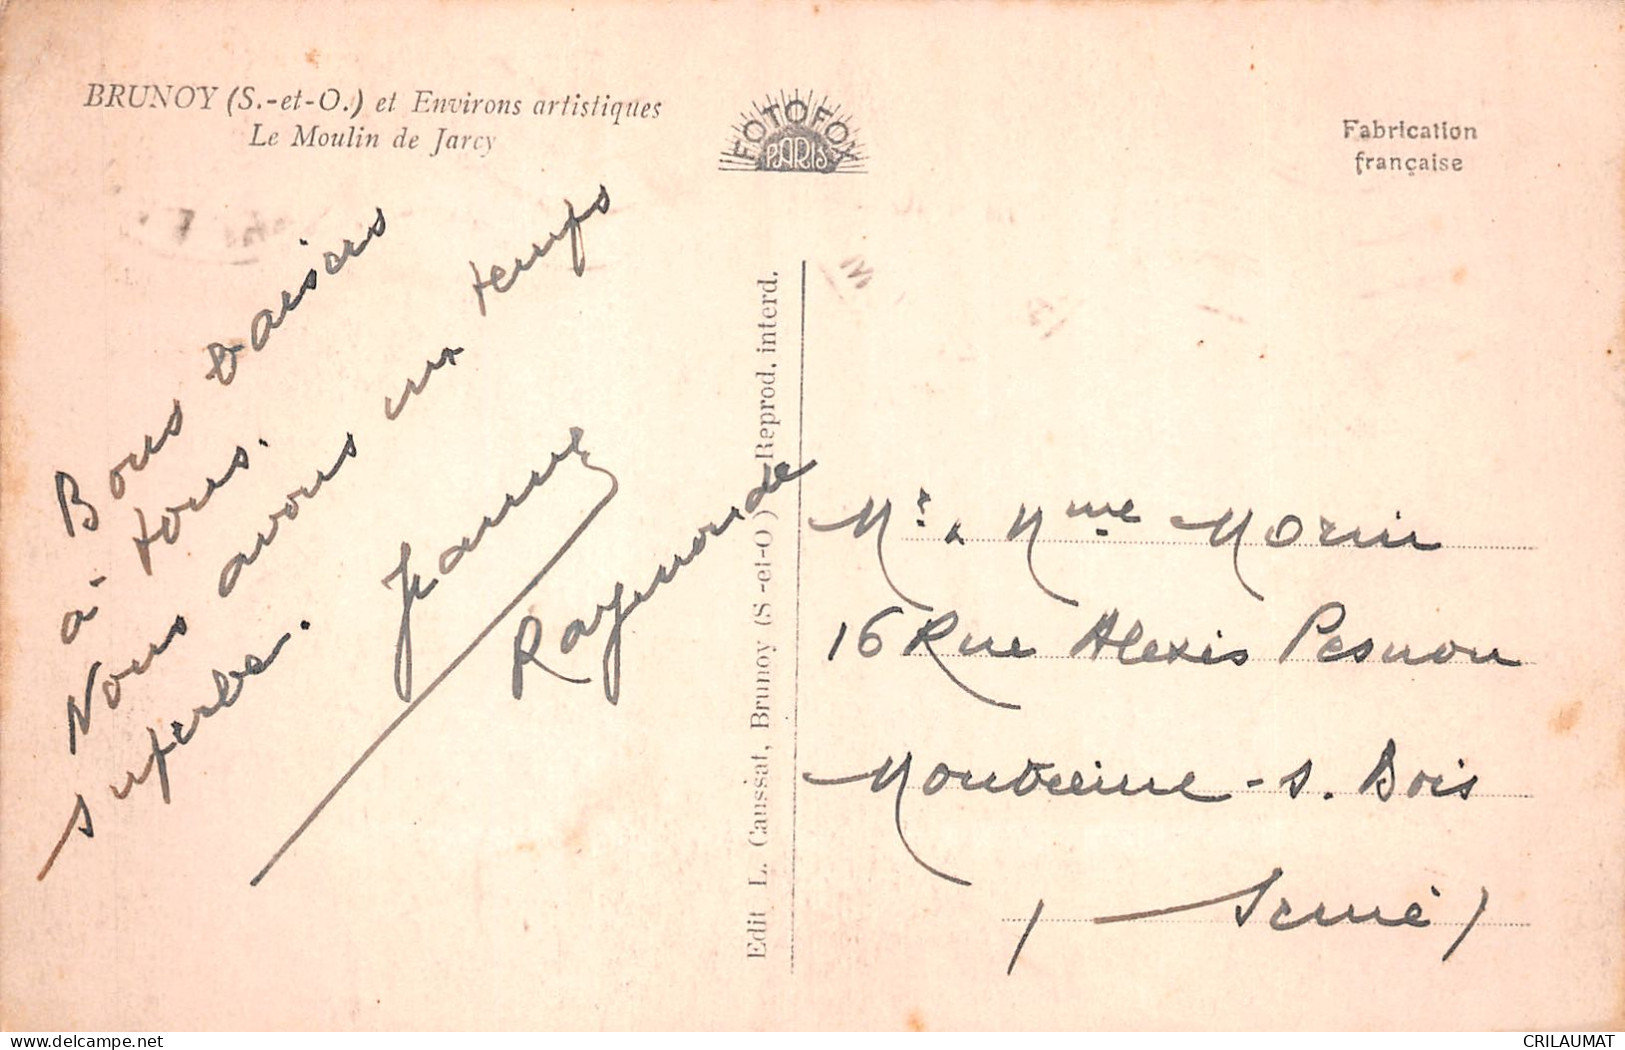 BRUNOY (S.-et-O.) et Environs artistiques
Le Moulin de Jarcy
FOTOFOX
PARIS
Fabrication
française
Bons baisers
à tous.
Nous avons un temps
superbe.
Jeanne
Raymonde
Edit L. Caussat, Brunoy (S -et-O) Reprod. interd.
Mr & Mme Morin
16 Rue Alexis Pesnon
Montreuil-s. Bois
(Seine)
delcampe.net
CRILAUMAT